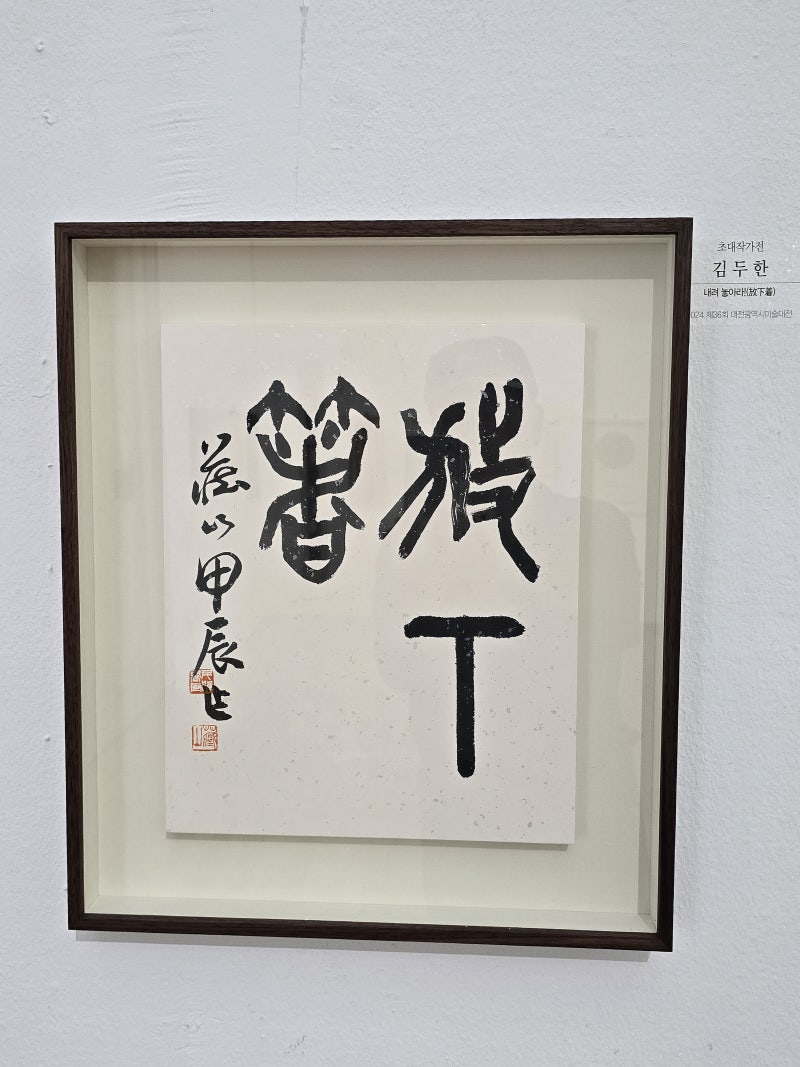 放下
箸
山甲辰
초대작가전
김두한
내려 놓아라!(放下着)
024 제36회 대전광역시미술대전